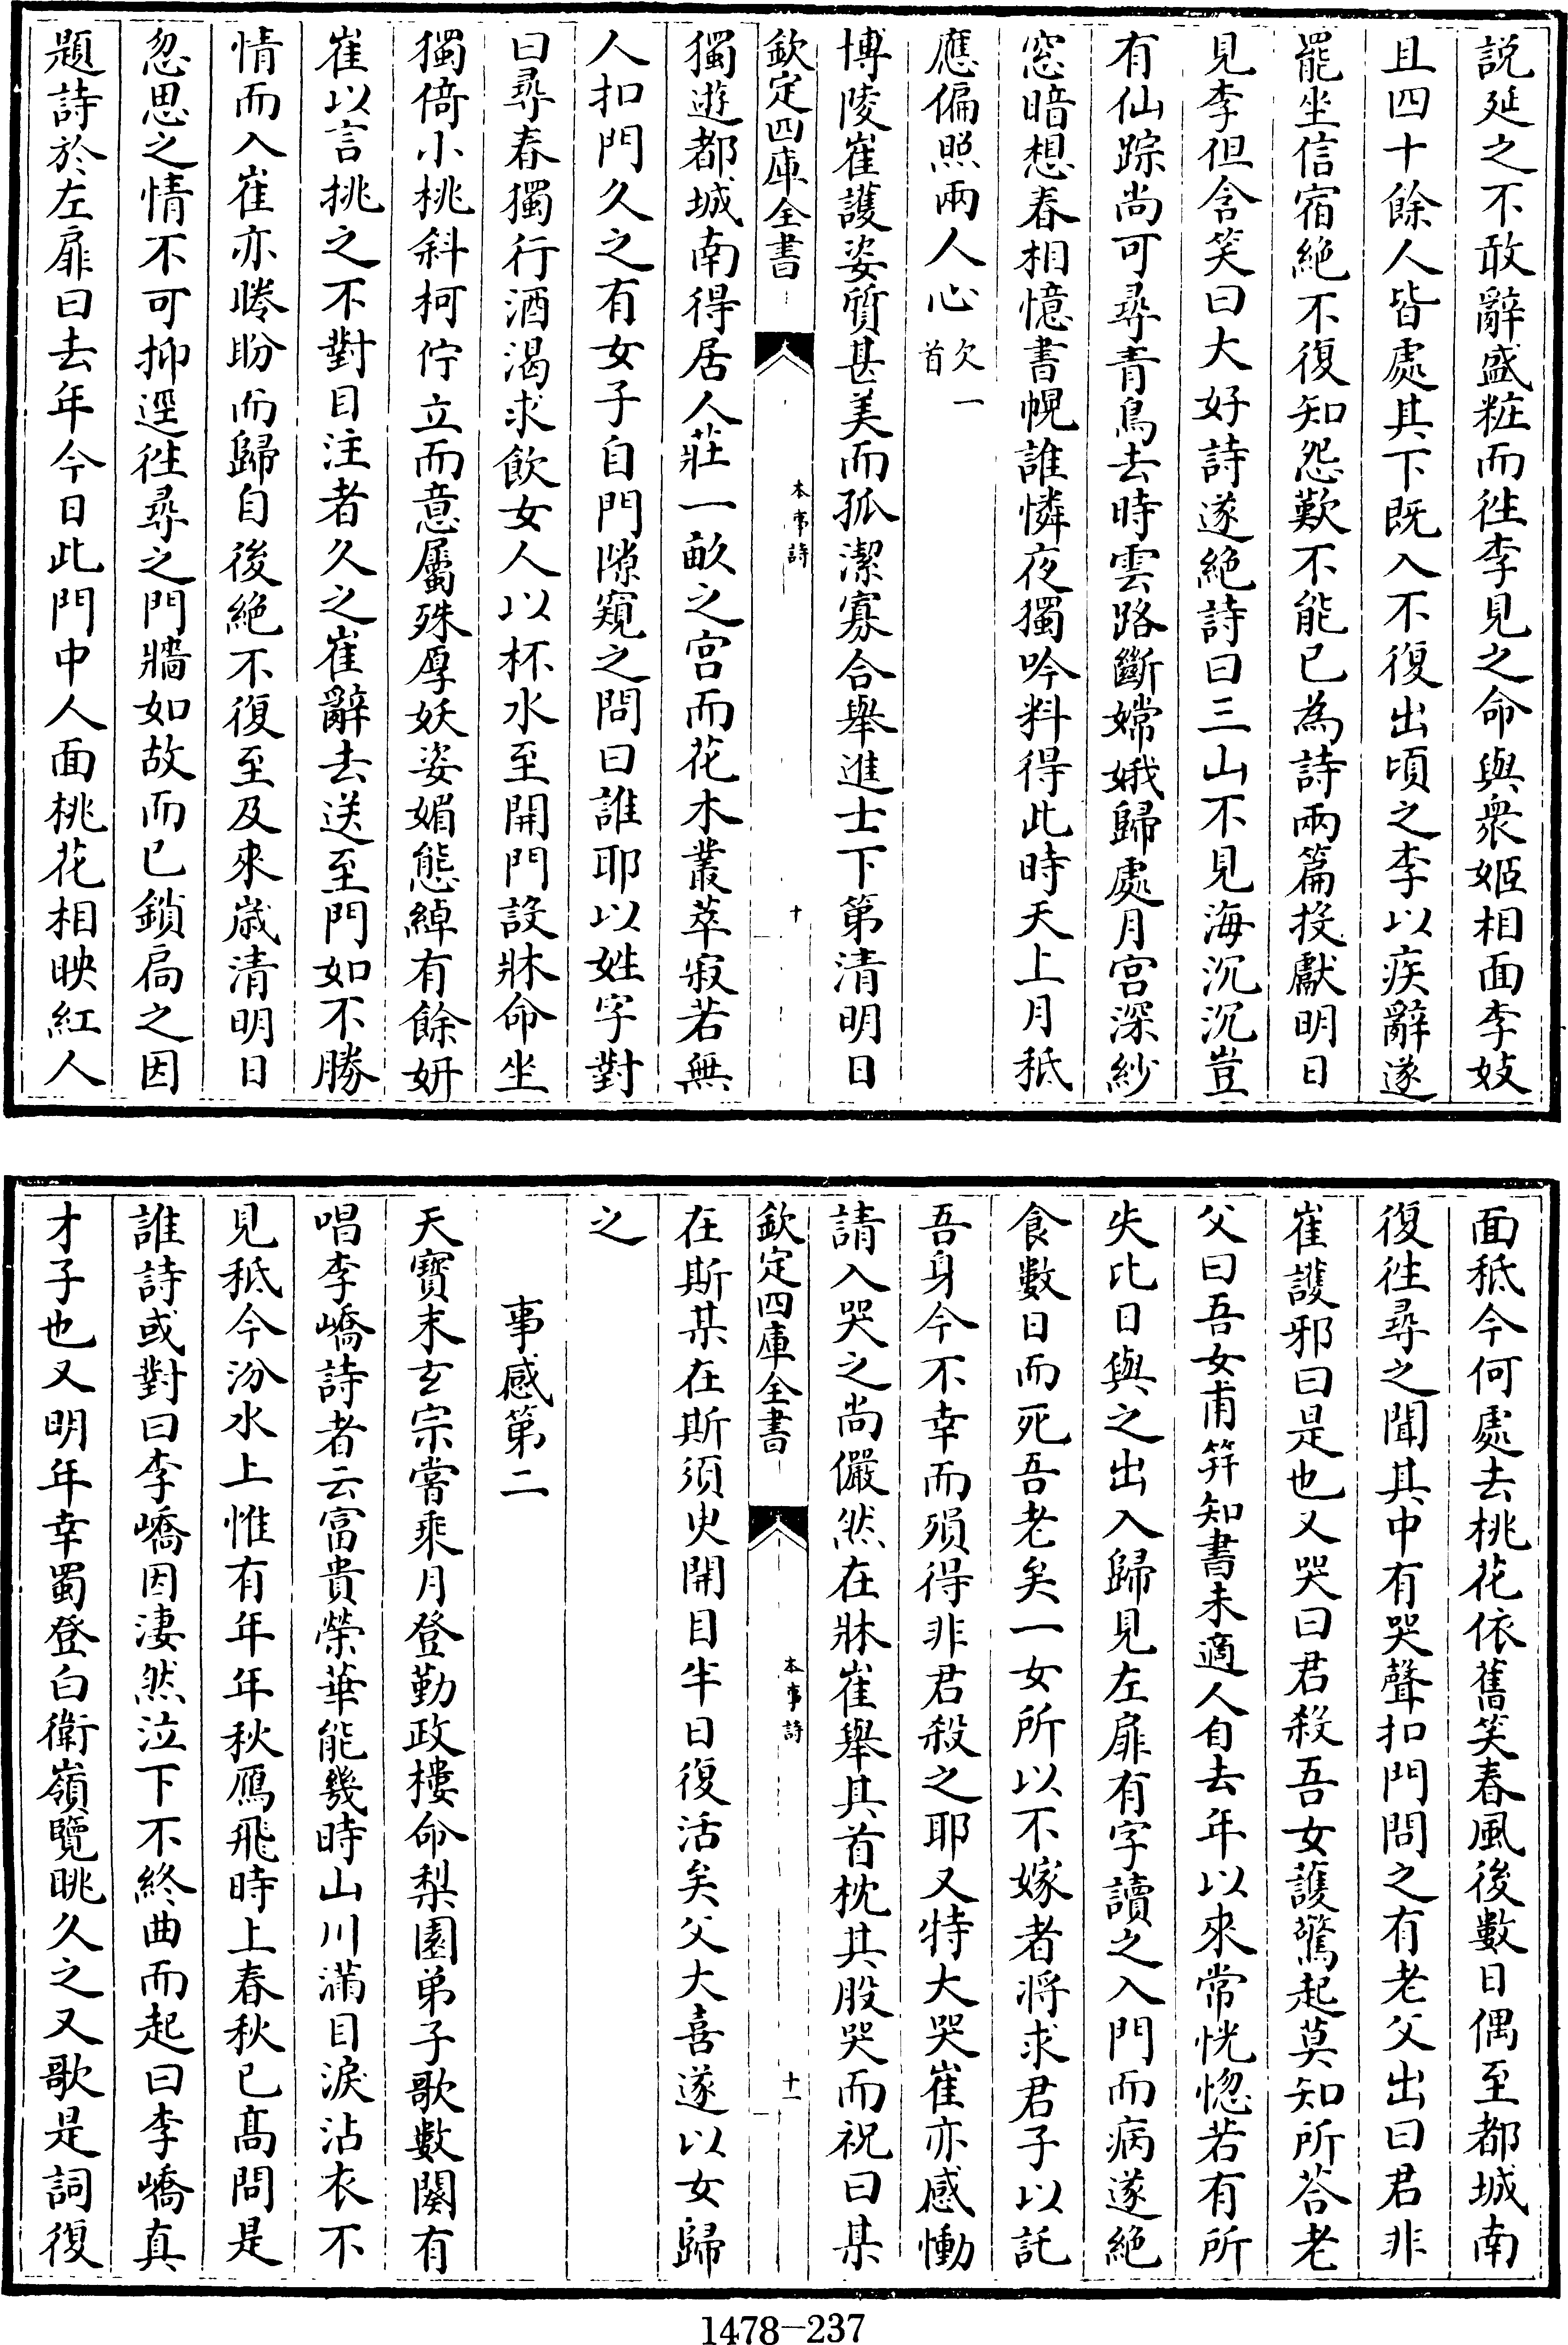 説延之不敢辭盛粧而徃李見之命與衆姬相面李妓
且四十餘人皆處其下既入不復出頃之李以疾辭遂
罷坐信宿絶不復知怨歎不能已為詩兩篇投獻明日
見李但含笑曰大好詩遂絶詩曰三山不見海沉沉豈
有仙踪尚可尋青鳥去時雲路斷嫦娥歸處月宫深紗
窓暗想春相憶書幌誰憐夜獨吟料得此時天上月秪
應偏照兩人心欠一首
博陵崔護姿質甚美而孤潔寡合舉進士下第清明日
欽定四庫全書
本事詩
十
獨遊都城南得居人莊一畝之宫而花木叢萃寂若無
人扣門久之有女子自門隙窺之問曰誰耶以姓字對
曰尋春獨行酒渴求飲女人以杯水至開門設牀命坐
獨倚小桃斜柯佇立而意屬殊厚妖姿媚態綽有餘妍
崔以言挑之不對目注者久之崔辭去送至門如不勝
情而入崔亦睠盼而歸自後絶不復至及來歳清明日
忽思之情不可抑逕徃尋之門牆如故而已鎖扃之因
題詩於左扉曰去年今日此門中人面桃花相映紅人
面秪今何處去桃花依舊笑春風後數日偶至都城南
復徃尋之聞其中有哭聲扣門問之有老父出曰君非
崔護邪曰是也又哭曰君殺吾女護驚起莫知所荅老
父曰吾女甫笄知書未適人自去年以來常恍惚若有所
失比日與之出入歸見左扉有字讀之入門而病遂絶
食數日而死吾老矣一女所以不嫁者將求君子以託
吾身今不幸而殞得非君殺之耶又特大哭崔亦感慟
請入哭之尚儼然在牀崔舉其首枕其股哭而祝曰某
欽定四庫全書
本事詩
十一
在斯某在斯須㬰開目半日復活矣父大喜遂以女歸
之
事感第二
天寶末玄宗嘗乘月登勤政樓命梨園弟子歌數闋有
唱李嶠詩者云富貴榮華能幾時山川滿目淚沾衣不
見秪今汾水上惟有年年秋鴈飛時上春秋已髙問是
誰詩或對曰李嶠因淒然泣下不終曲而起曰李嶠真
才子也又明年幸蜀登白衛嶺覽眺久之又歌是詞復
1478-237